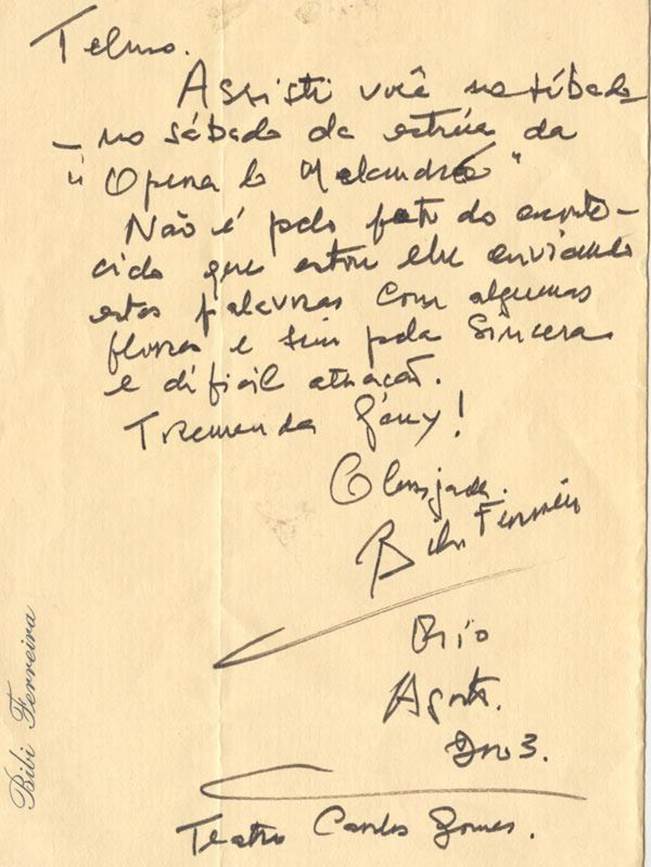 Telmo.
Assisti você no sábado
— no sábado da estréia da
"Opera do Malandro"
Não é pelo fato do aconte-
cido que estou lhe enviando
estas palavras com algumas
flores e sim pela sincera
e difícil atuação.
Tremenda Gény!
Obrigada.
Bibi Ferreira
Rio
Agosto.
Teatro Carlos Gomes.
Bibi Ferreira